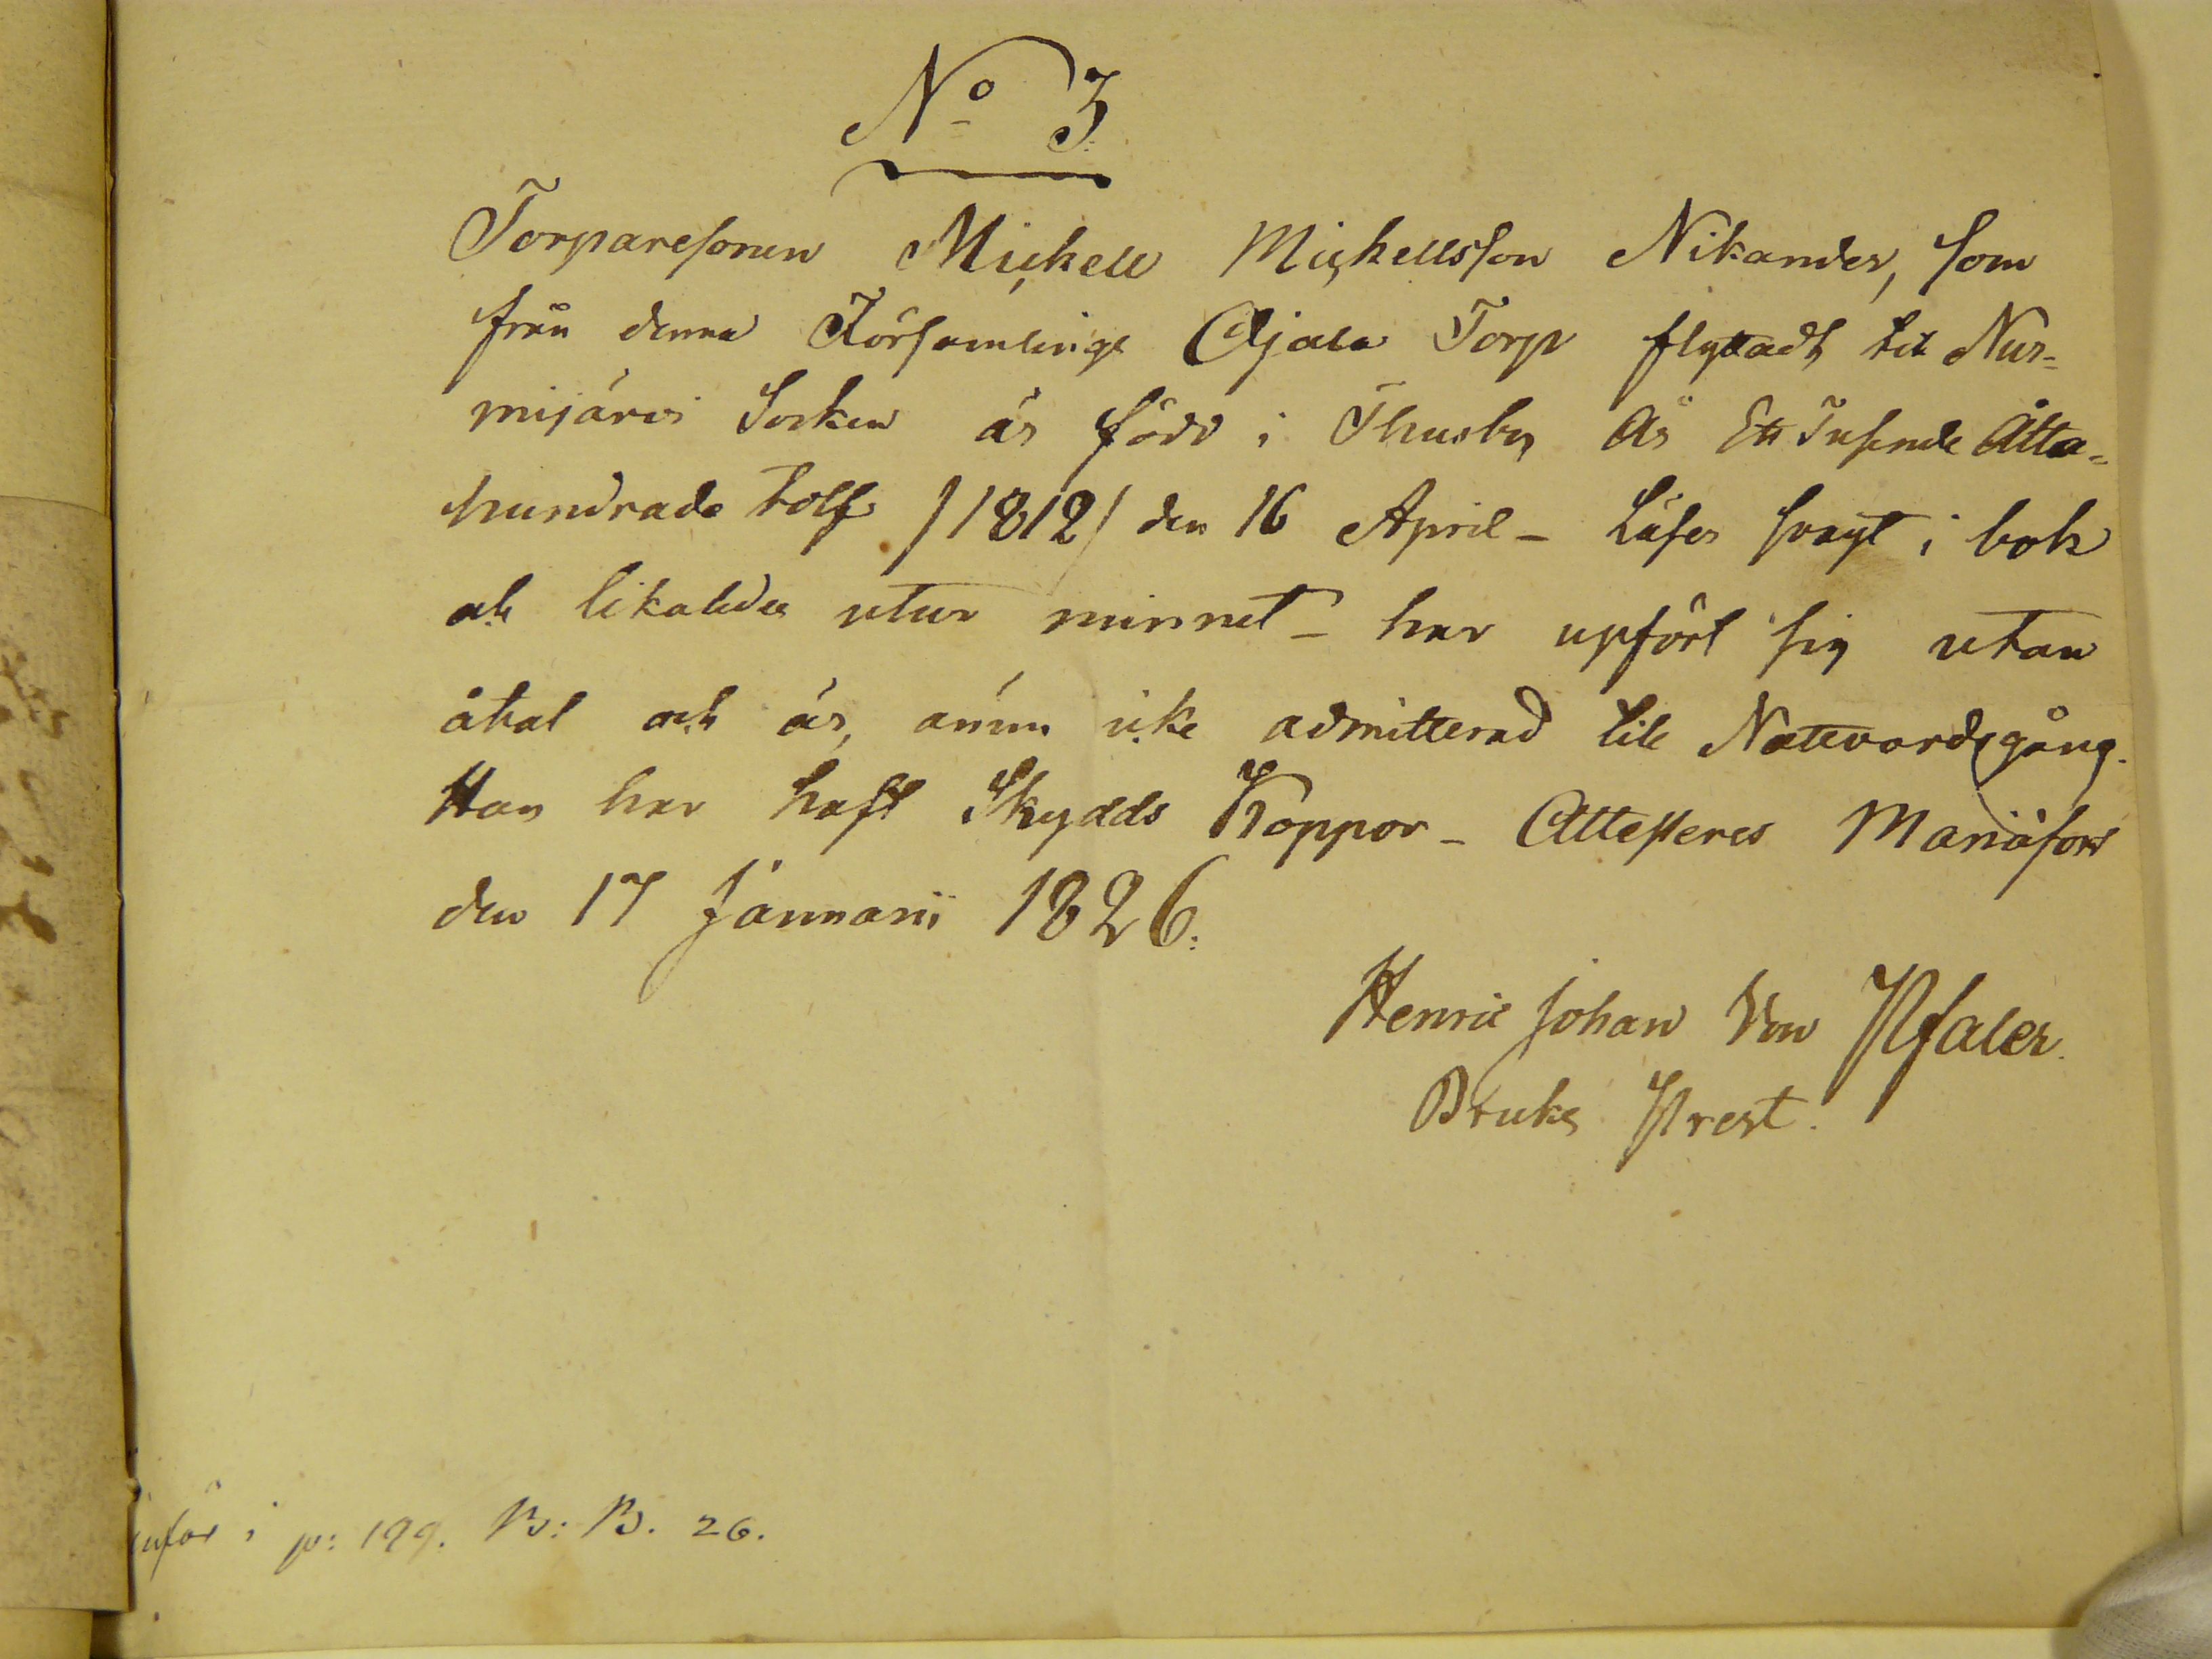 No 3.
Torparesonen Mickell Mickellsson Nikander, som
från denna Församlings Ojala Torp flyttadt till Nur-
mijärvi Socken är född i Thusby År Ett Tusende Åtta-
hundrade tolf /1812/ den 16 April - Läser svagt i bok
och likaledes utur minnet - har upfört sig utan
åtal och är, ännu icke admitterad till Nattvardsgång.
Han har haft Skydds Koppor - Attesteres Mariæfors
den 17 Januarii 1826.
Henric Johan Von Pfaler.
Bruks Prest.
införd i p: 199. B: B. 26.